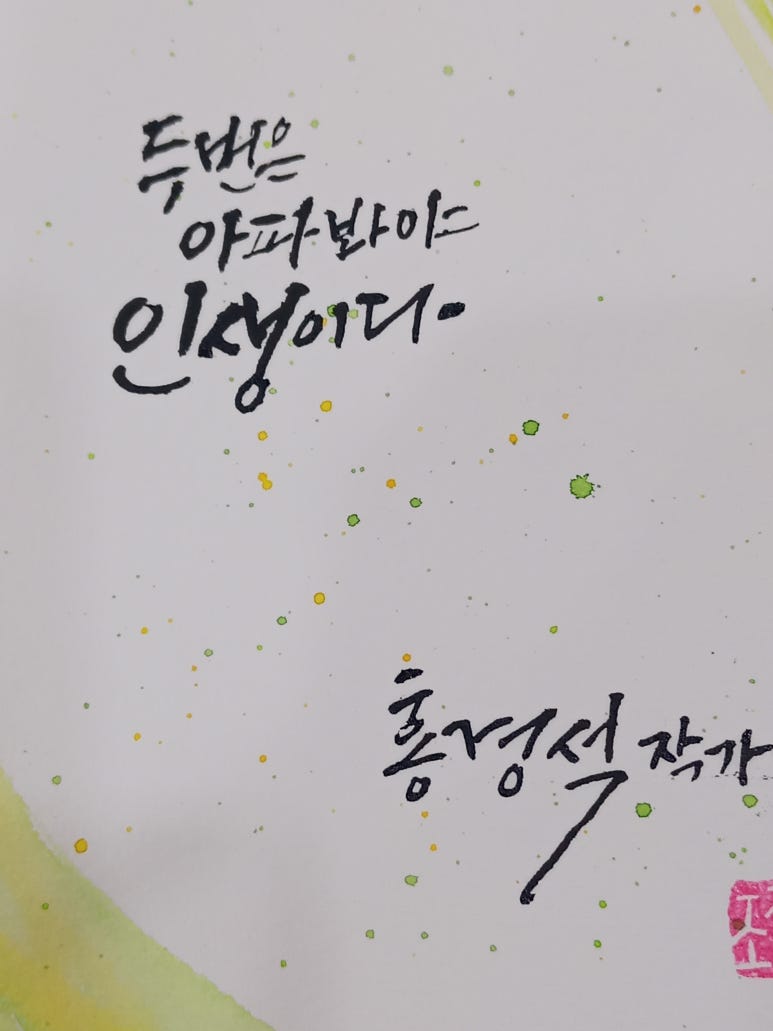 두번은
아파봐야
인생이다.
홍경석 작가